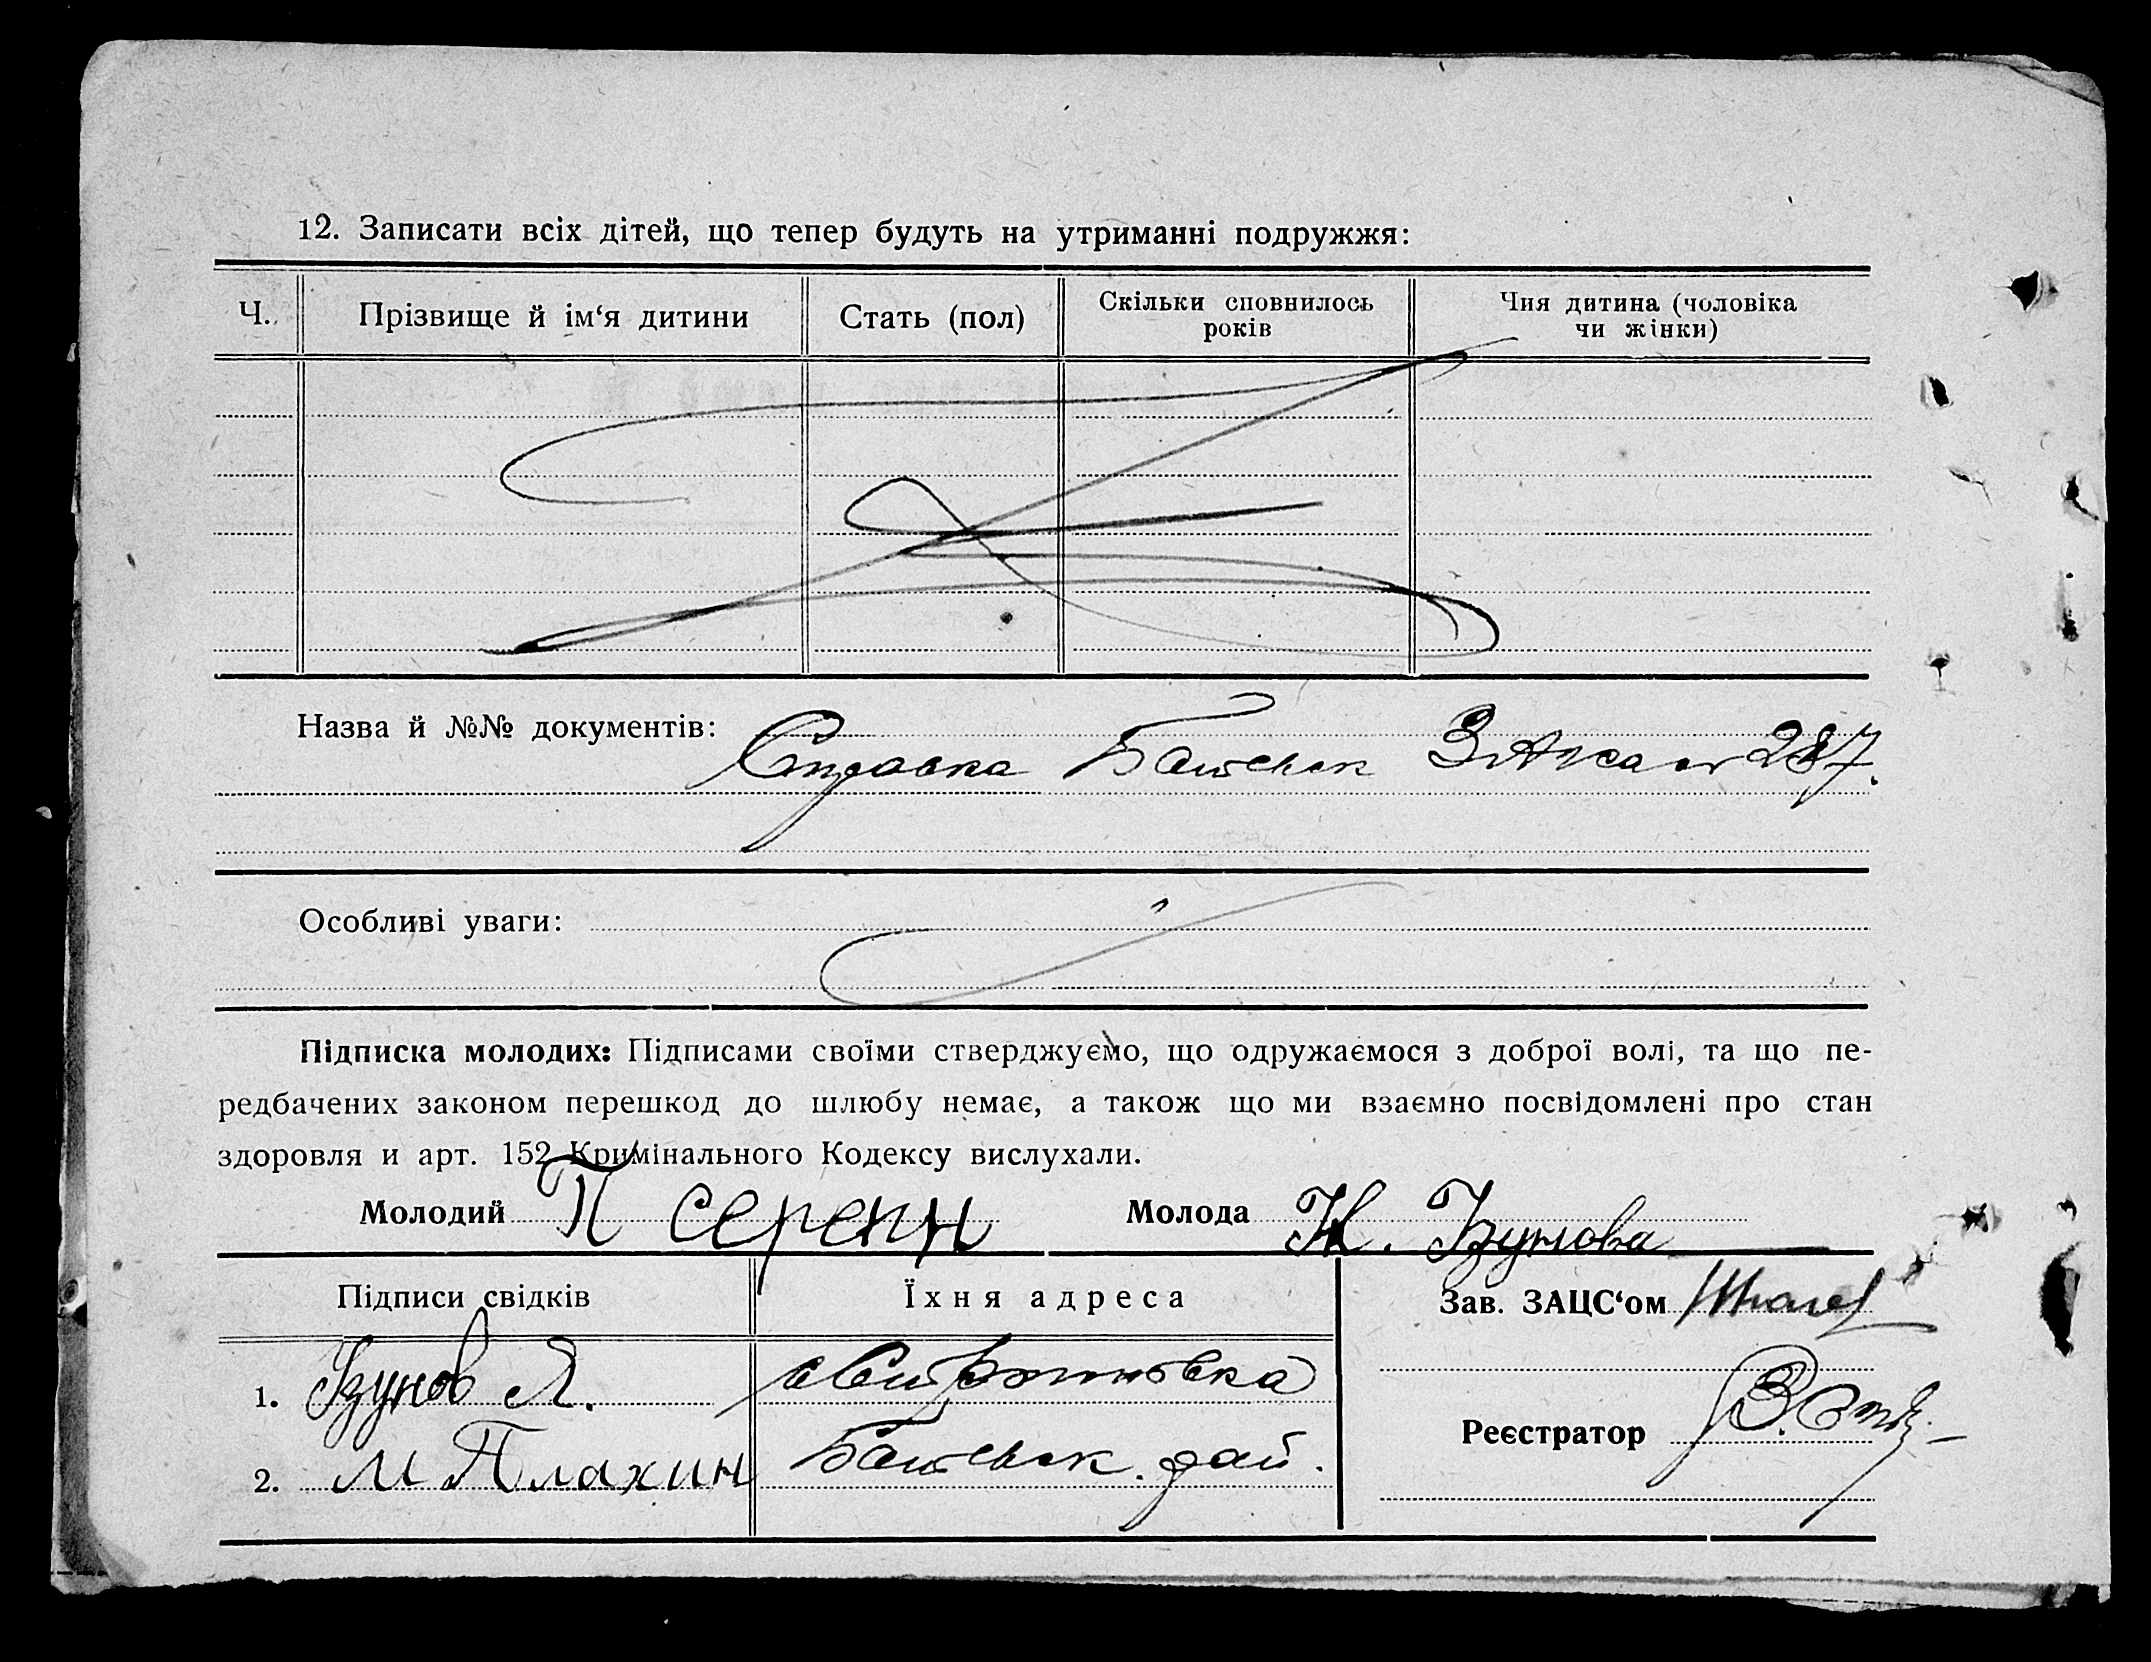 12. Записати всіх дітей, що тепер будуть на утриманні подружжя:
Ч. Прізвище й ім‘я дитини Стать (пол) Скільки сповнилось років Чия дитина (чоловіка чи жінки)
Назва й №№ документів: Справка 287.
Особливі уваги:
Підписка молодих: Підписами своїми стверджуємо, що одружаємося з доброї волі, та що пе-
редбачених законом перешкод до шлюбу немає, а також що ми взаємно посвідомлені про стан
здоровля и арт. 152 Кримінального Кодексу вислухали.
Молодий П Молода Н. Ізунова
Підписи свідків Їхня адреса Зав. ЗАЦС‘ом
1. Ізунов Я.
Реєстратор
2. М Плахин рай.